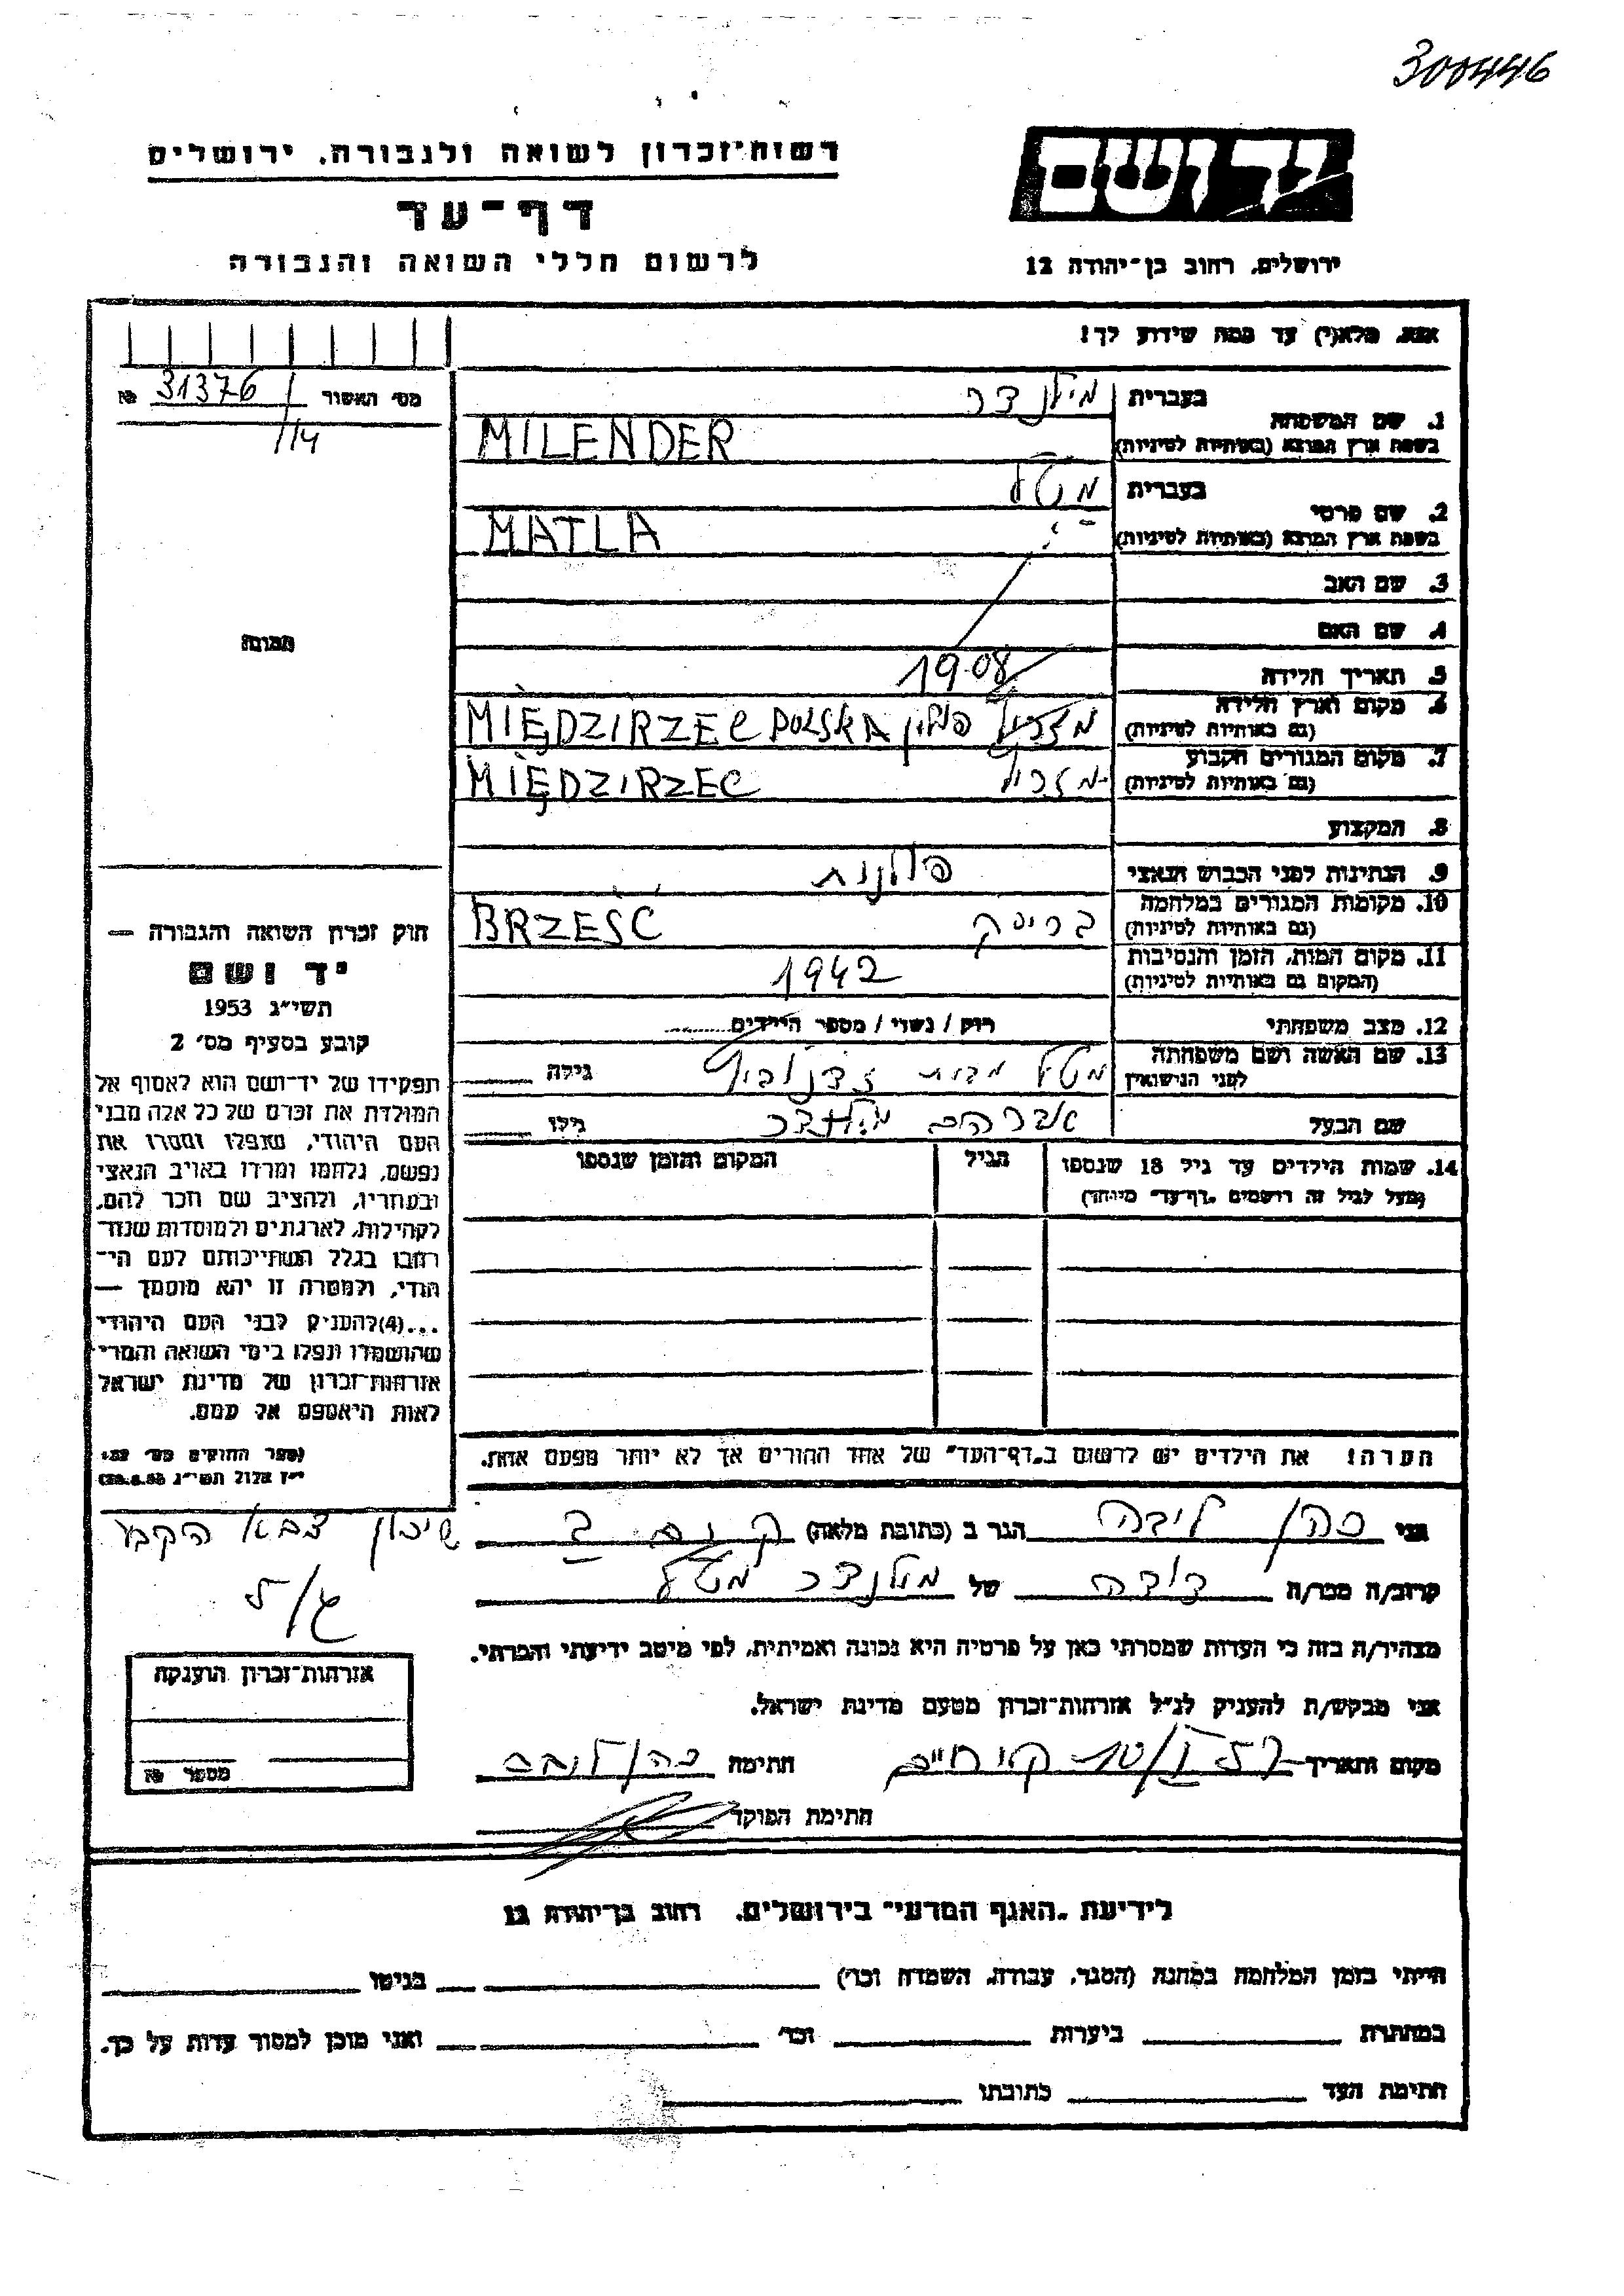 300446
יד ושם
רשות־זכרון לשואה ולגבורה, ירושלים
דף־עד
לרשום חללי השואה והגבורה
ירושלים, רחוב בן־יהודה 12
אנא, מלא(י) עד כמה שידוע לך!
מס׳ האשור 31376 №
114
1. שם המשפחה
בעברית מילנדר
בשפת ארץ המוצא (באותיות לטיניות) MILENDER
2. שם פרטי
בעברית מטל
בשפת ארץ המוצא (באותיות לטיניות) MATLA
3. שם האב
4. שם האם
5. תאריך הלידה 1908
6. מקום וארץ הלידה
(גם באותיות לטיניות) פולין MIĘDZIRZEC POLSKA
7. מקום המגורים הקבוע
(גם באותיות לטיניות) MIĘDZIRZEC
8. המקצוע
9. הנתינות לפני הכבוש הנאצי פולנית
10. מקומות המגורים במלחמה
(גם באותיות לטיניות) בריסק BRZESC
11. מקום המות, הזמן והנסיבות
(המקום גם באותיות לטיניות) 1942
12. מצב משפחתי רוק / נשוי / מספר הילדים
13. שם האשה ושם משפחתה
לפני הנישואין מטל מבית גילה
שם הבעל אברהם מילנדר גילו
14. שמות הילדים עד גיל 18 שנספו
(מעל לגיל זה רושמים „דף־עד״ מיוחד)
הגיל
המקום והזמן שנספו
הערה! את הילדים יש לרשום ב„דף־העד״ של אחד ההורים אך לא יותר מפעם אחת.
תמונה
חוק זכרון השואה והגבורה —
יד ושם
תשי״ג 1953
קובע בסעיף מס׳ 2
תפקידו של יד־ושם הוא לאסוף אל
המולדת את זכרם של כל אלה מבני
העם היהודי, שנפלו ומסרו את
נפשם, נלחמו ומרדו באויב הנאצי
ובעוזריו, ולהציב שם וזכר להם,
לקהילות, לארגונים ולמוסדות שנח־
רבו בגלל השתייכותם לעם הי־
הודי, ולמטרה זו יהא מוסמך —
...(4) להעניק לבני העם היהודי
שהושמדו ונפלו בימי השואה והמרי
אזרחות־זכרון של מדינת ישראל
לאות היאספם אל עמם.
(ספר החוקים מס׳ 132
י״ז אלול תשי״ג 28.8.53)
אני כהן ליבה הגר ב (כתובת מלאה)
שיכון צבא הקבע
קרוב/ה מכר/ה דודה של מילנדר מטל
מצהיר/ה בזה כי העדות שמסרתי כאן על פרטיה היא נכונה ואמיתית, לפי מיטב ידיעתי והכרתי.
אני מבקש/ת להעניק לנ״ל אזרחות־זכרון מטעם מדינת ישראל.
מקום ותאריך חתימה כהן ליבה
חתימת הפוקד
אזרחות־זכרון הוענקה
מספר №
לידיעת „האגף המדעי״ בירושלים, רחוב בן־יהודה 12
הייתי בזמן המלחמה במחנה (הסגר, עבודה, השמדה וכו׳) בגיטו
במחתרת ביערות וכו׳ ואני מוכן למסור עדות על כך.
חתימת העד כתובתו